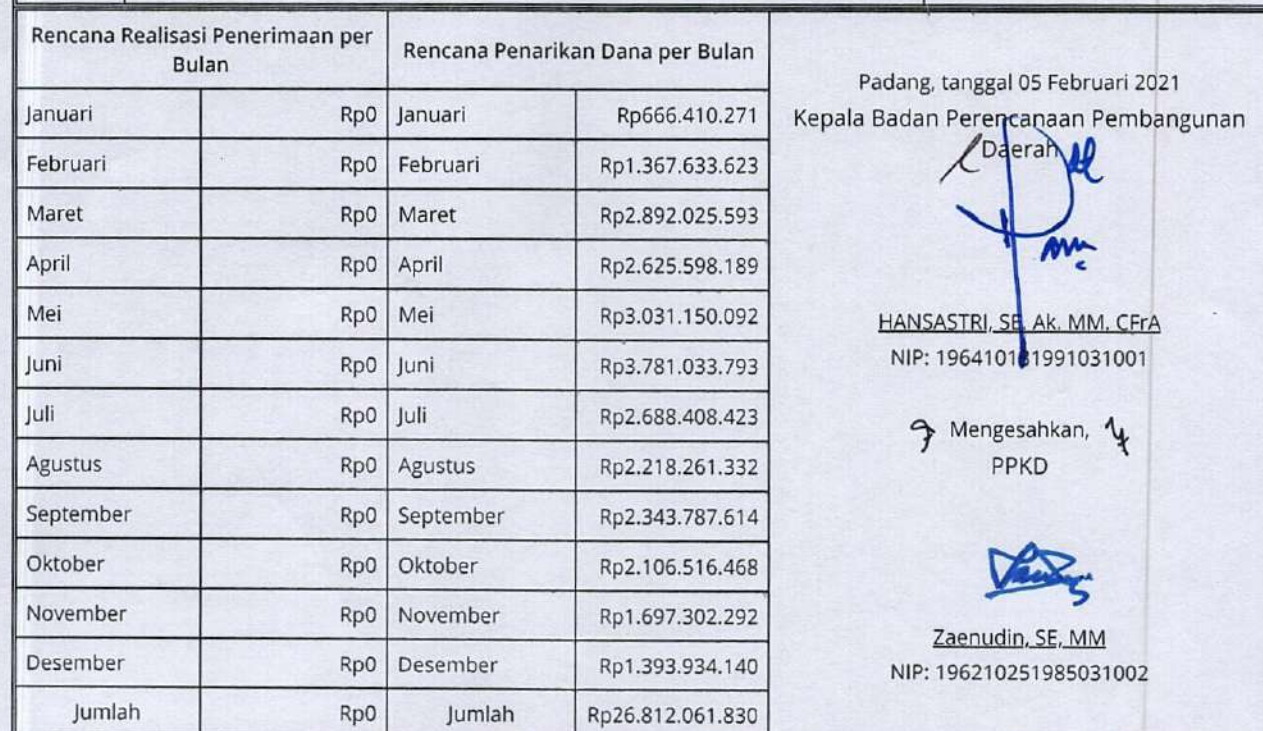 Rencana Realisasi Penerimaan per
Bulan
Rencana Penarikan Dana per Bulan
Januari Rp0 Januari Rp666.410.271
Februari Rp0 Februari Rp1.367.633.623
Maret Rp0 Maret Rp2.892.025.593
April Rp0 April Rp2.625.598.189
Mei Rp0 Mei Rp3.031.150.092
Juni Rp0 Juni Rp3.781.033.793
Juli Rp0 Juli Rp2.688.408.423
Agustus Rp0 Agustus Rp2.218.261.332
September Rp0 September Rp2.343.787.614
Oktober Rp0 Oktober Rp2.106.516.468
November Rp0 November Rp1.697.302.292
Desember Rp0 Desember Rp1.393.934.140
Jumlah Rp0 Jumlah Rp26.812.061.830
Padang, tanggal 05 Februari 2021
Kepala Badan Perencanaan Pembangunan
Daerah
HANSASTRI, SE, Ak. MM. CFrA
NIP:
Mengesahkan,
PPKD
Zaenudin, SE, MM
NIP: 196210251985031002